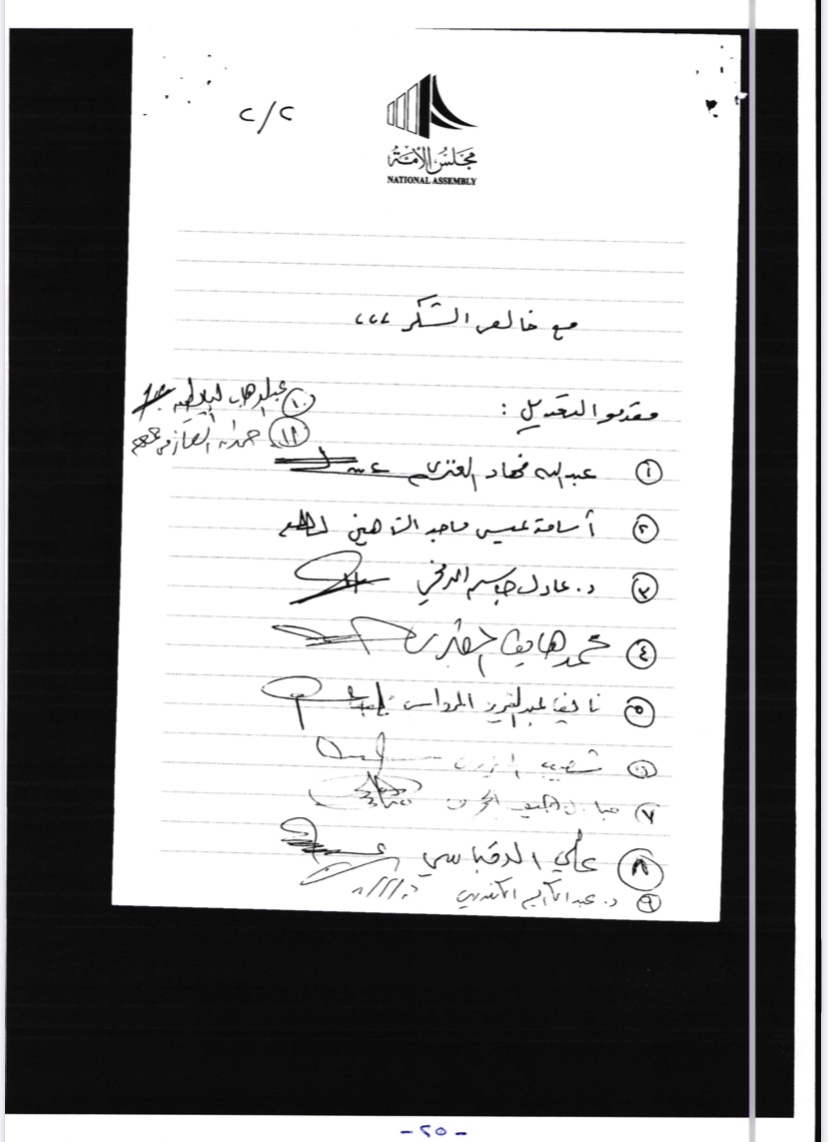 ٢/٢
مجلس الأمة
NATIONAL ASSEMBLY
مع خالص الشكر ،،،
مقدمو التعديل :
١ عبدالله فهاد العنزي
٢ أسامة عيسى ماجد الشاهين
٣ د. عادل جاسم الدمخي
٤ محمد هايف
٥ نايف عبدالعزيز المرداس
٦ شعيب
٧ مبارك
٨ علي الدقباسي
٩ د. عبدالكريم الكندري
١٠ عبدالوهاب البابطين
١١ حمدان العازمي
- ٢٥ -